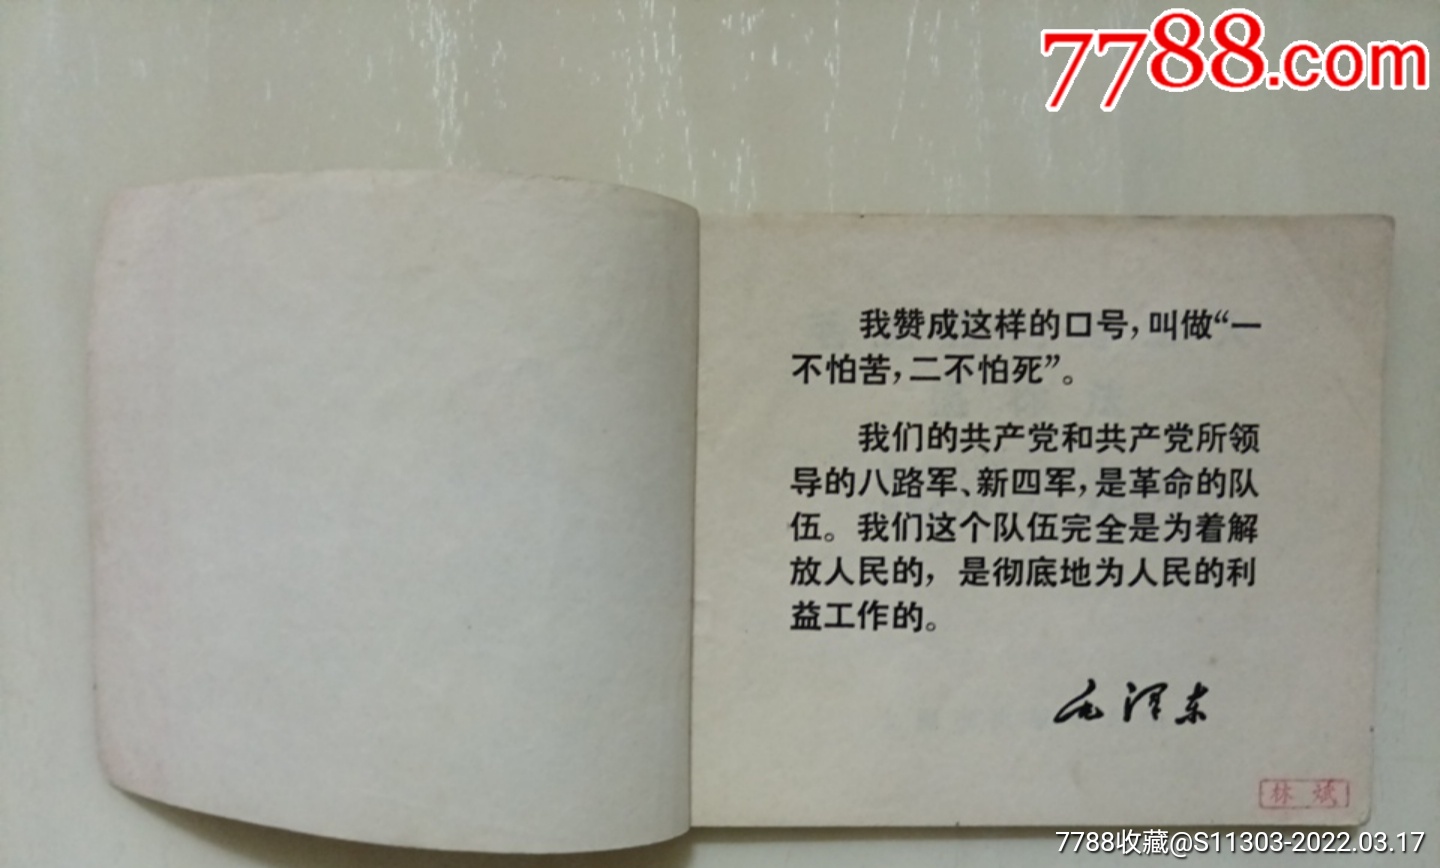 7788.com
我赞成这样的口号，叫做“一
不怕苦，二不怕死”。
我们的共产党和共产党所领
导的八路军、新四军，是革命的队
伍。我们这个队伍完全是为着解
放人民的，是彻底地为人民的利
益工作的。
毛泽东
林斌
7788收藏@S11303-2022.03.17